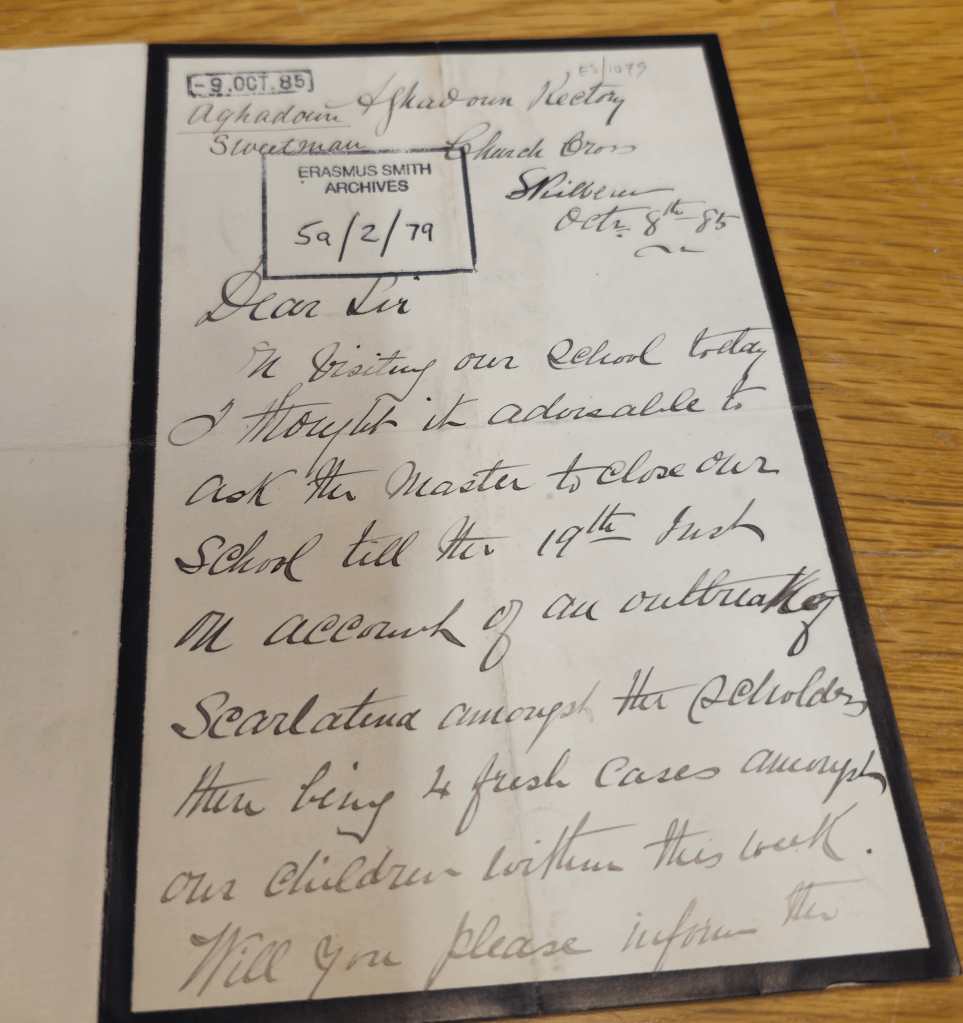 -9.OCT.85
ES/1079
Aghadown
Aghadown Rectory
Sweetman
Church Cross
Skibbereen
Octr. 8th 85
ERASMUS SMITH
ARCHIVES
5a/2/79
Dear Sir
On Visiting our School today
I thought it advisable to
ask the Master to close our
School till the 19th Inst
on account of an outbreak of
Scarlatina amongst the scholars
there being 4 fresh cases amongst
our children within this week.
Will you please inform the